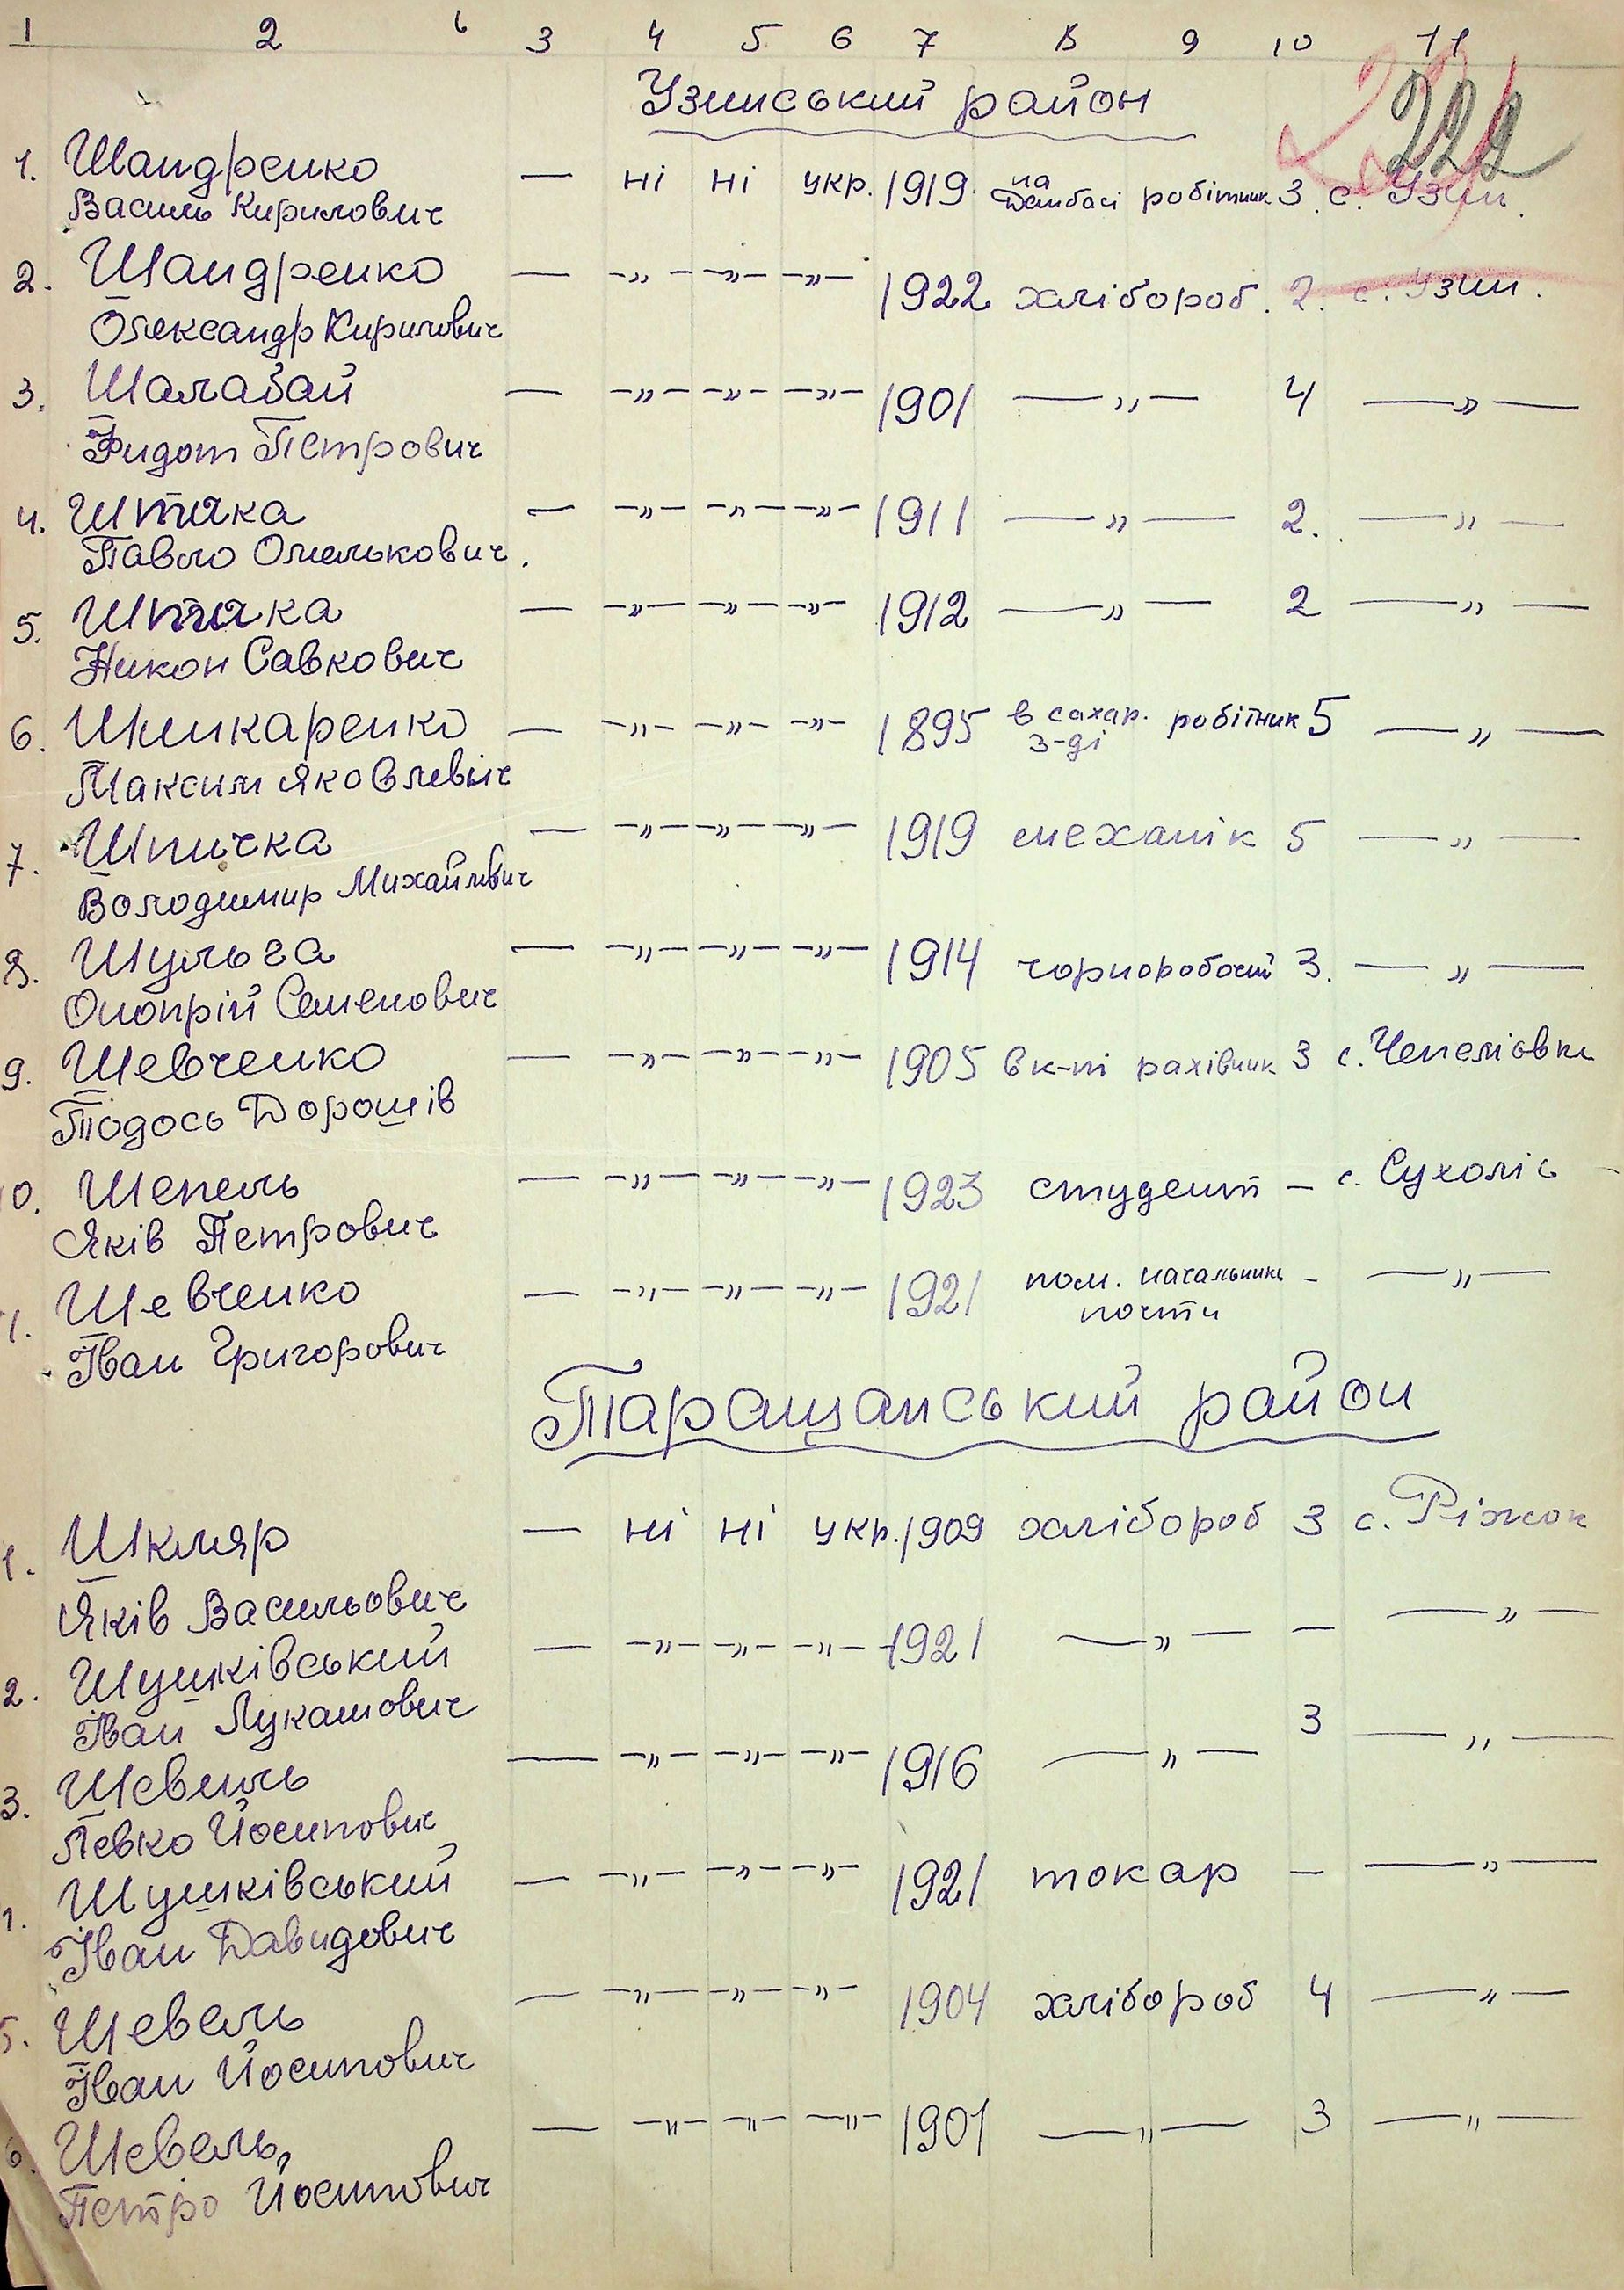 1 2 3 4 5 6 7 8 9 10 11
Узинський район
222
1. Шандренко — ні ні укр. 1919 на Донбасі робітник 3. с. Узин.
Василь Кирилович
2. Шандренко — —„— —„— —„— 1922 хлібороб. 2. с. Узин.
Олександр Кирилович
3. Шалабай — —„— —„— —„— 1901 —„— 4 —„—
Федот Петрович
4. Штика — —„— —„— —„— 1911 —„— 2. —„—
Павло Омелькович.
5. Штика — —„— —„— —„— 1912 —„— 2 —„—
Никон Савкович
6. Шинкаренко — —„— —„— —„— 1895 в сахар. з-ді робітник 5 —„—
Максим Яковлевич
7. Шпичка — —„— —„— —„— 1919 механік 5 —„—
Володимир Михайлович
8. Шульга — —„— —„— —„— 1914 чорноробочий 3. —„—
Онопрій Семенович
9. Шевченко — —„— —„— —„— 1905 в к-пі рахівник 3 с. Чепеліовка
Тодось Дорошів
10. Шепель — —„— —„— —„— 1923 студент — с. Сухоліс
Яків Петрович
11. Шевченко — —„— —„— —„— 1921 пом. начальника почти - —„—
Іван Григорович
Таращанський район
1. Шкляр — ні ні укр. 1909 хлібороб 3 с. Ріжок
Яків Васильович
2. Шушківський — —„— —„— —„— 1921 —„— — —„—
Іван Лукашович
3. Шевель — —„— —„— —„— 1916 —„— 3 —„—
Левко Йосипович
4. Шушківський — —„— —„— —„— 1921 токар — —„—
Іван Давидович
5. Шевель — —„— —„— —„— 1904 хлібороб 4 —„—
Іван Йосипович
6. Шевель — —„— —„— —„— 1901 —„— 3 —„—
Петро Йосипович